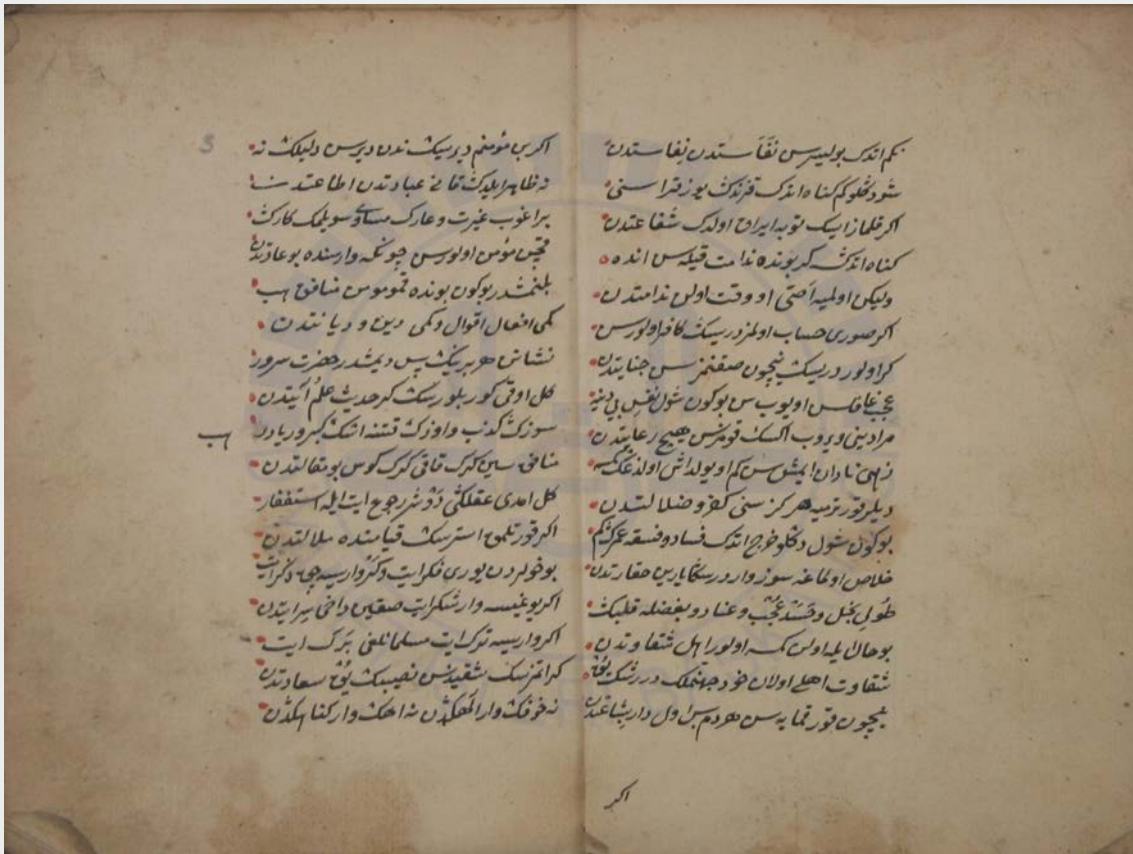 نكم اتدك بوليسرس نفاستدن نفاستدن
شو دكلوكم كناه اتدك قرنرك يوز قرا سنی
اكر قلمازايسك توبه ايراق اولدك شفاعتدن
كناه اتدكسه كر بونده ندامت قيله سن انده
وليكن اولميه اصّی او وقت اولن ندامتدن
اكر صوری حساب اولمز درسك كافر اولورسن
كر اولور درسك نيچون صقنمزسن جنايتدن
عجب غافلسن اويوب سن بوكون شول نفس بی دينه
مرادينی ويروب اكسك قومزسن هيچ رعايتدن
زهی نادان ايمش سن كم او يولداش اولدعك كسه
ديلر قورترميه هركز سنی كفر و ضلالتدن
بوكون شول دكلو خرج اتدك فساد و فسقه عمركم
خلاص اولماغه سوز وار درسك يارين حقارتدن
طولی بخل و حسد عجب و عناد و بغضله قلبك
بو حال ايله اولن كسه اولور اهل شقاوتدن
شقاوت اهلی اولان خود جهنملك در رشك يوق
نيچون قورقمايه سن هردم سن اول دار
اكر
اكر بن مؤمنم ديرسك ندن ديرسن دليلك نه
نه ظاهر ايلدك قانی عبادتدن اطاعتدن
براغوب غيرت و عارك مساوی سويلمك كارك
قچن مؤمن اولورسن چونكه وار سنده بو عادتدن
بلنمشدر بوكون بونده قمو مؤمن منافق هب
كمی افعال اقوال و كمی دين و ديانتدن
نشانن هر برينك پس ديمشدر حضرت سرور
كل اوقی كور بلورسك كر حديث علم آيتدن
سوزك كذب و اوزك فتنه اشك كبر و ريادن هب
منافق سين كرك قاقی كرك كوس بو مقالتدن
كل امدی عقلكی دوشر رجوع ايت ايله استغفار
اكر قورتلمق استرسك قيامتده ملالتدن
بو خولردن يوری فكر ايت دكر واريسه جی دكر ايت
اكر يوغيسه وار شكر ايت صقين داخی سرايتدن
اكر واريسه ترك ايت مسلمانلغی برك ايت
كر اتمزسك شقيسن نصيبك يوق سعادتدن
نه خوفك وار اللهكدن نه اهك وار كناهكدن